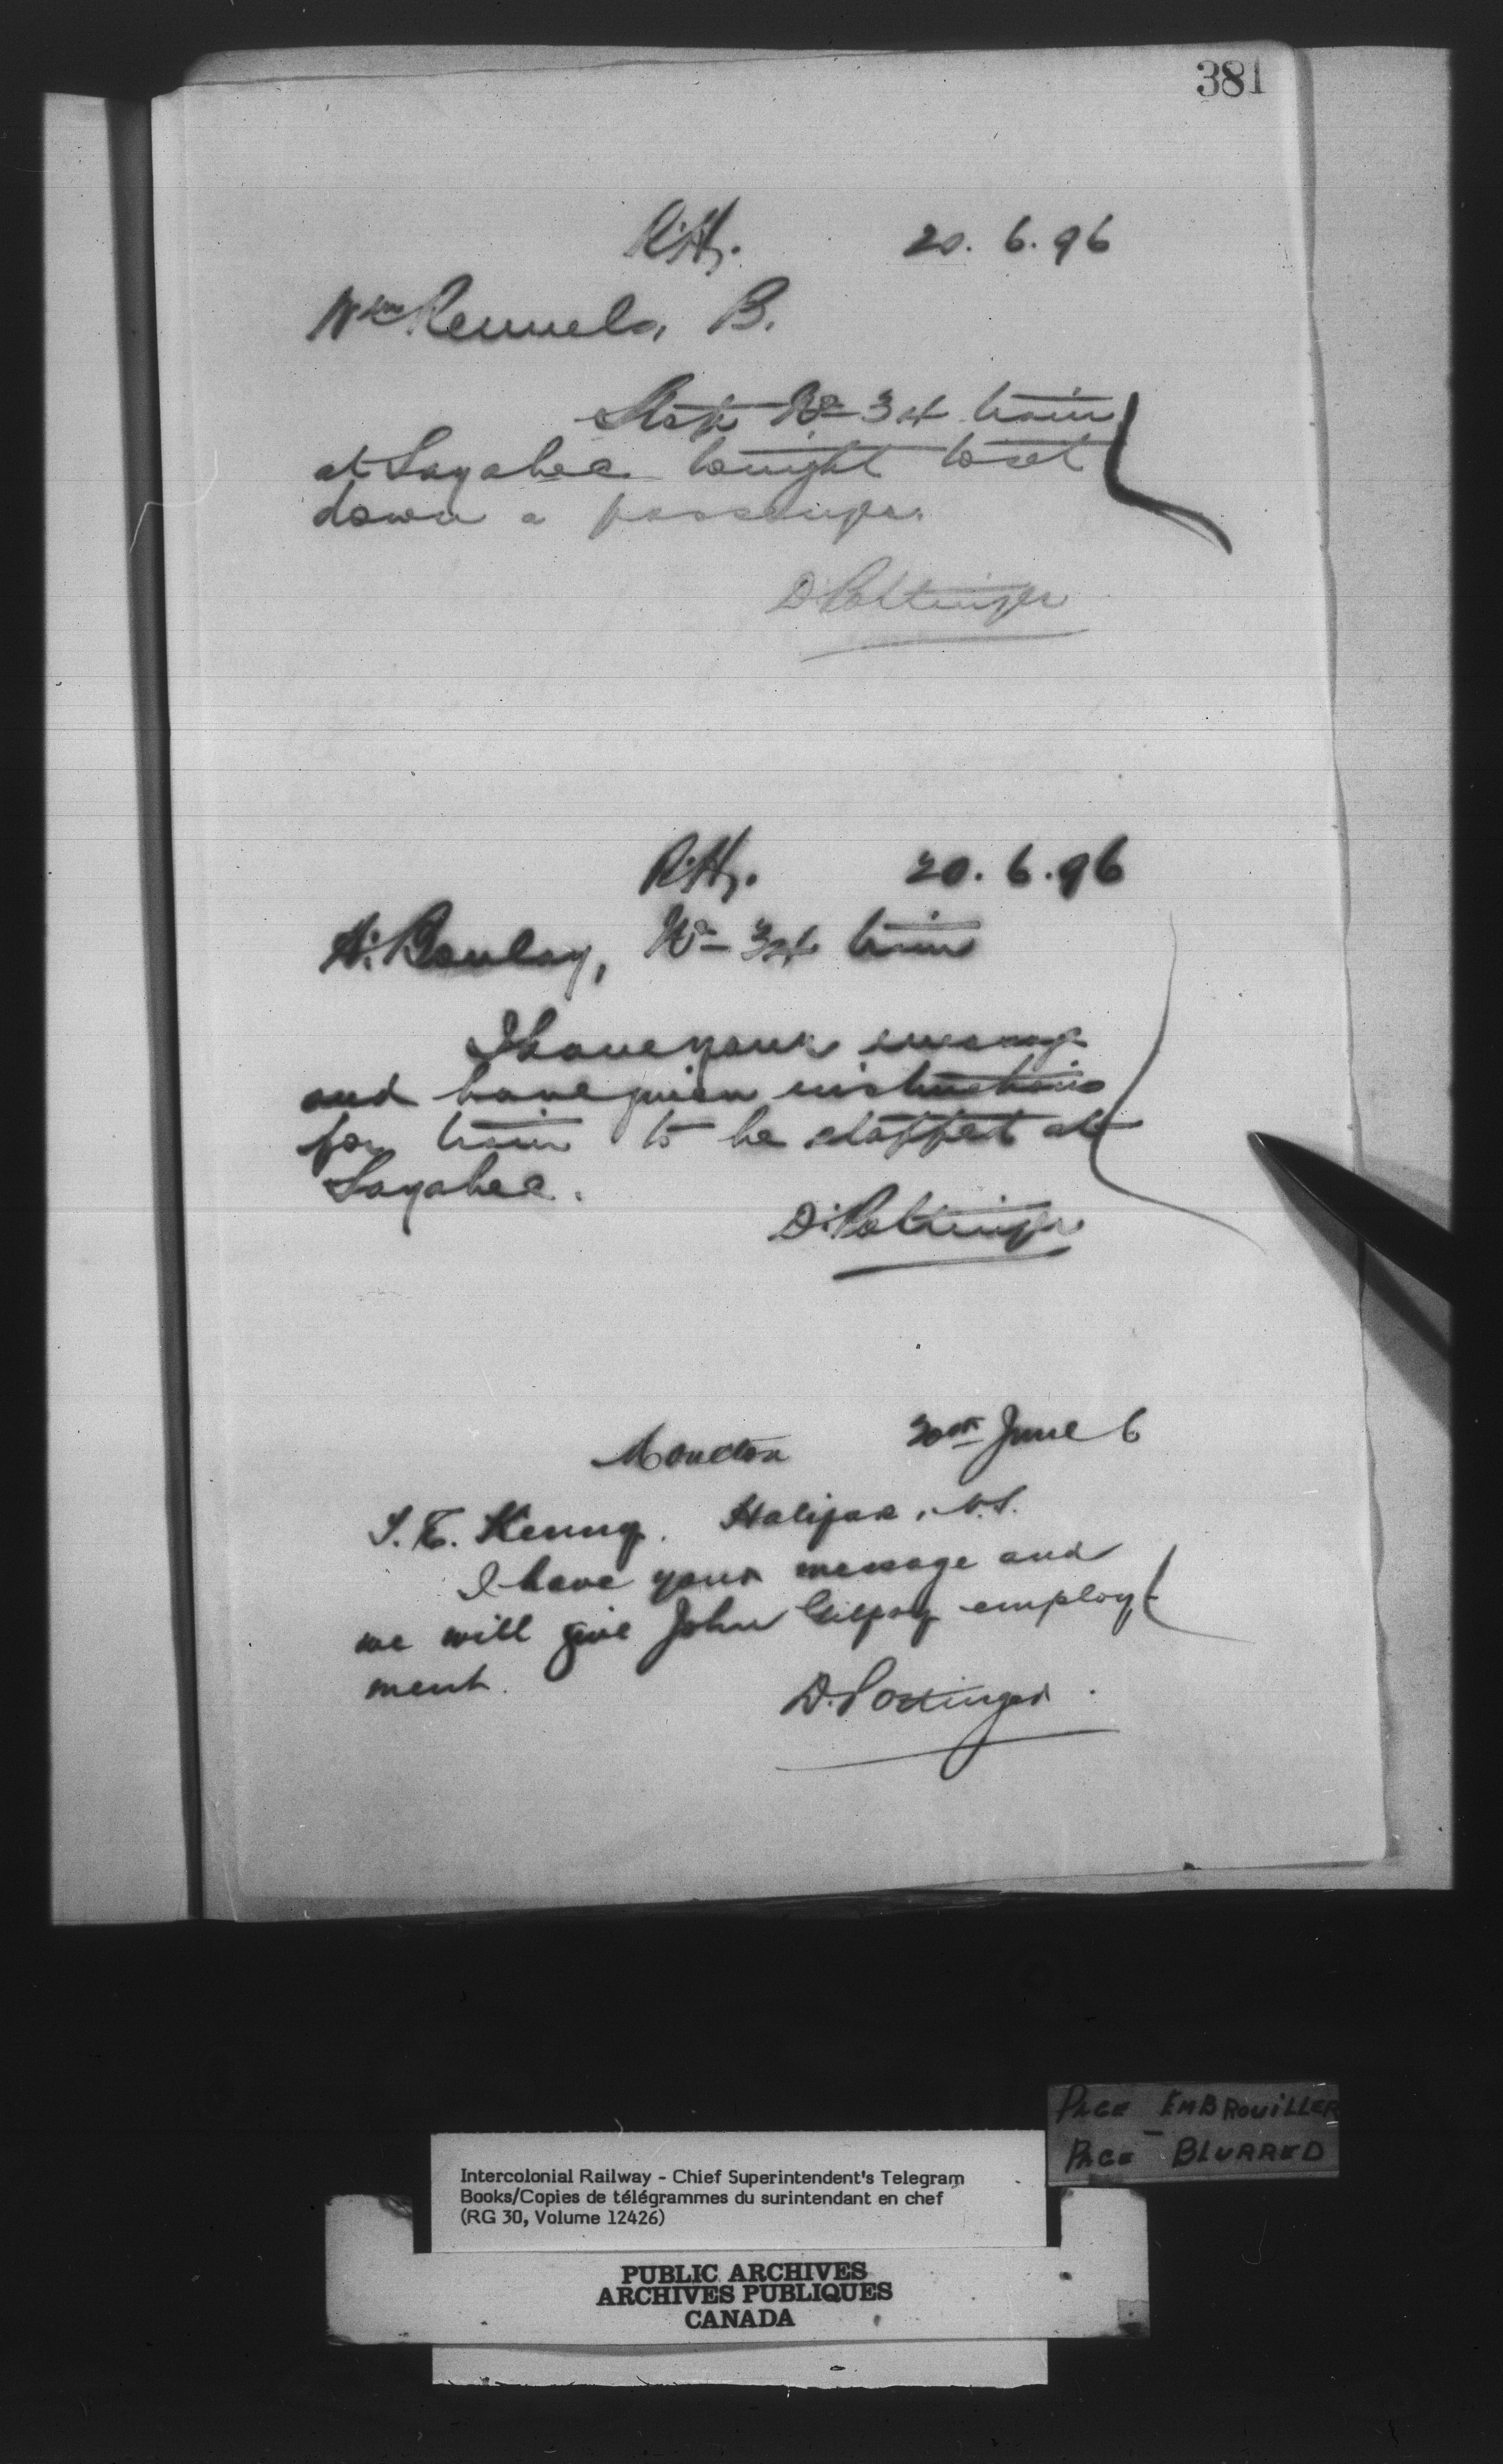 381
20. 6. 96
Wm Rennels, B.
Stop No 34 train
at Sayabec tonight to set
down a passenger.
D. Pottinger
20. 6. 96
A. Boulay, No 34 train
I have your message
and have given instructions
for train to be stopped at
Sayabec.
D. Pottinger
Moncton 20th June 6
T. E. Kenny. Halifax, N.S.
I have your message and
we will give John employ-
ment.
D. Pottinger.
PAGE EMBROUILLER
PAGE BLURRED
Intercolonial Railway - Chief Superintendent's Telegram
Books/Copies de télégrammes du surintendant en chef
(RG 30, Volume 12426)
PUBLIC ARCHIVES
ARCHIVES PUBLIQUES
CANADA